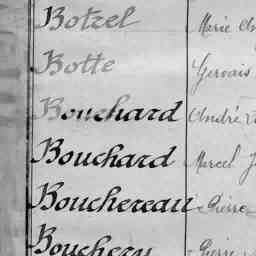 Botzel Marie
Botte Gervais
Bouchard André
Bouchard Marcel J
Bouchereau Pierre
Bouchery Pierre